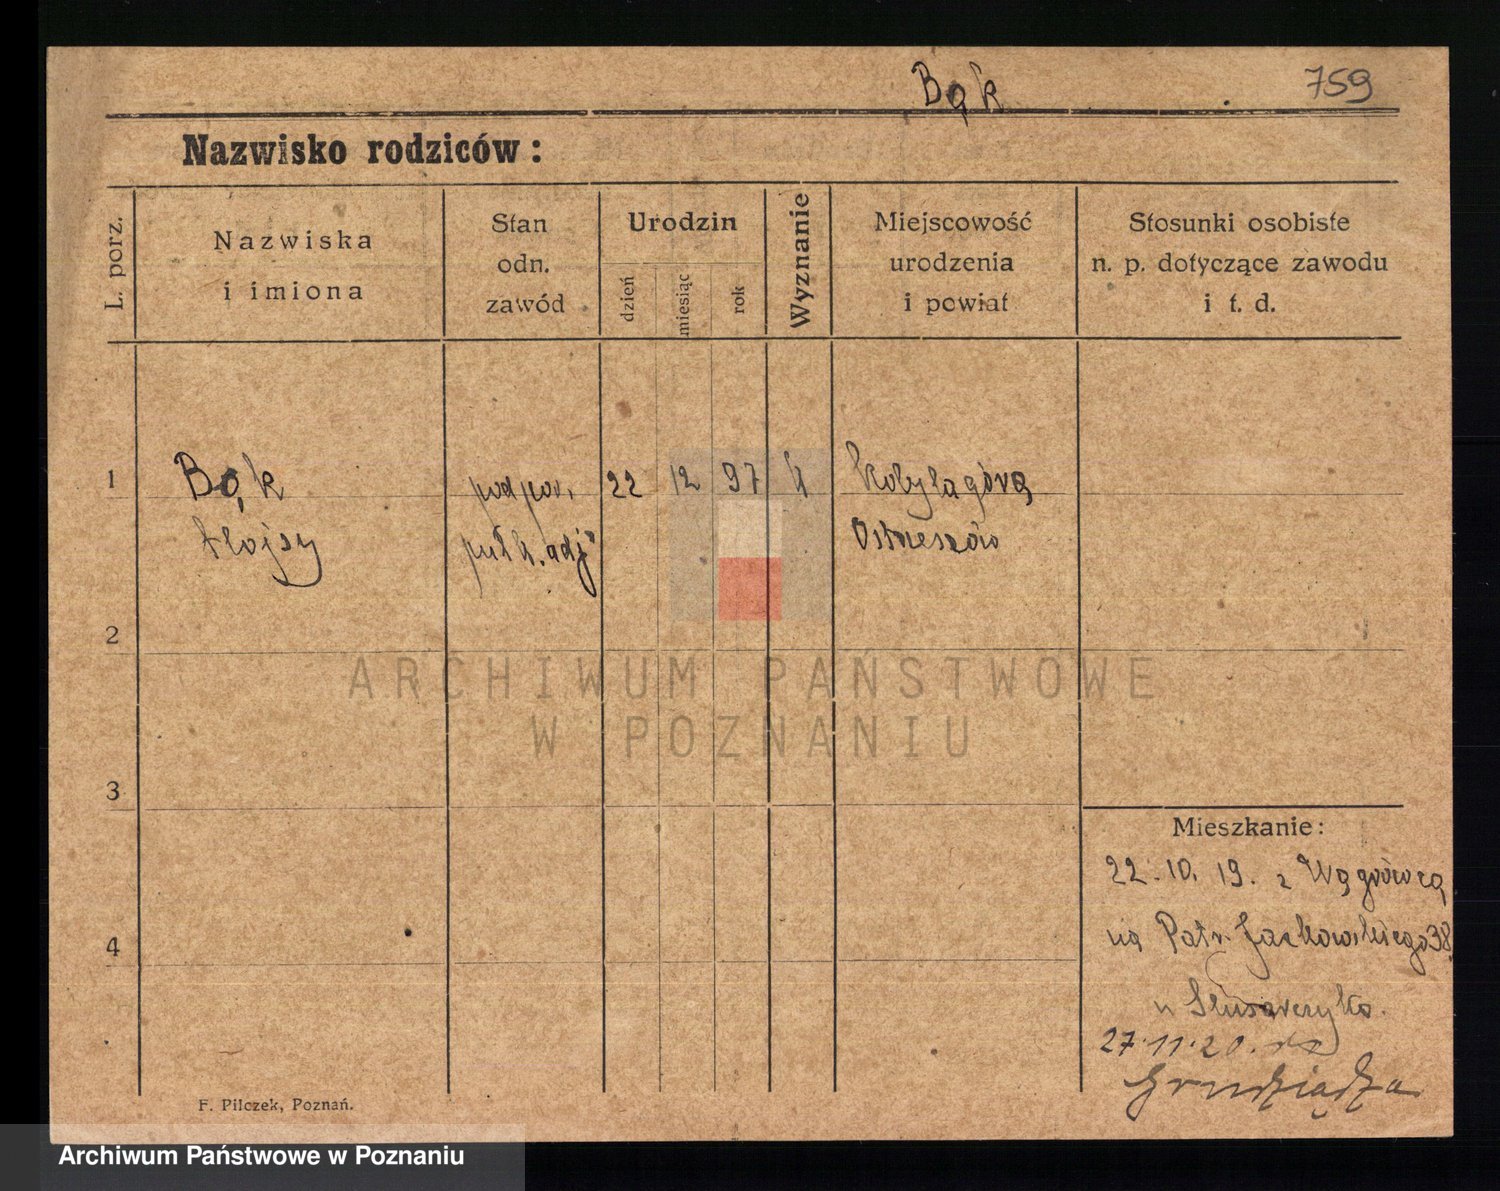 Bąk 759
Nazwisko rodziców:
L. porz.
Nazwiska
i imiona
Stan
odn.
zawód
Urodzin
dzień
miesiąc
rok
Wyznanie
Miejscowość
urodzenia
i powiat
Stosunki osobiste
n. p. dotyczące zawodu
i t. d.
1 Bąk podpor. 22 12 97 k Kobylagóra
Alojzy pułk. adj
2
ARCHIWUM PAŃSTWOWE
W POZNANIU
3
Mieszkanie:
22. 10. 19. z Wągrówca
na Patr. Jackowskiego 38
4
u Ślusarczyka.
27.11.20. do
Grudziądza
F. Pilczek, Poznań.
Archiwum Państwowe w Poznaniu